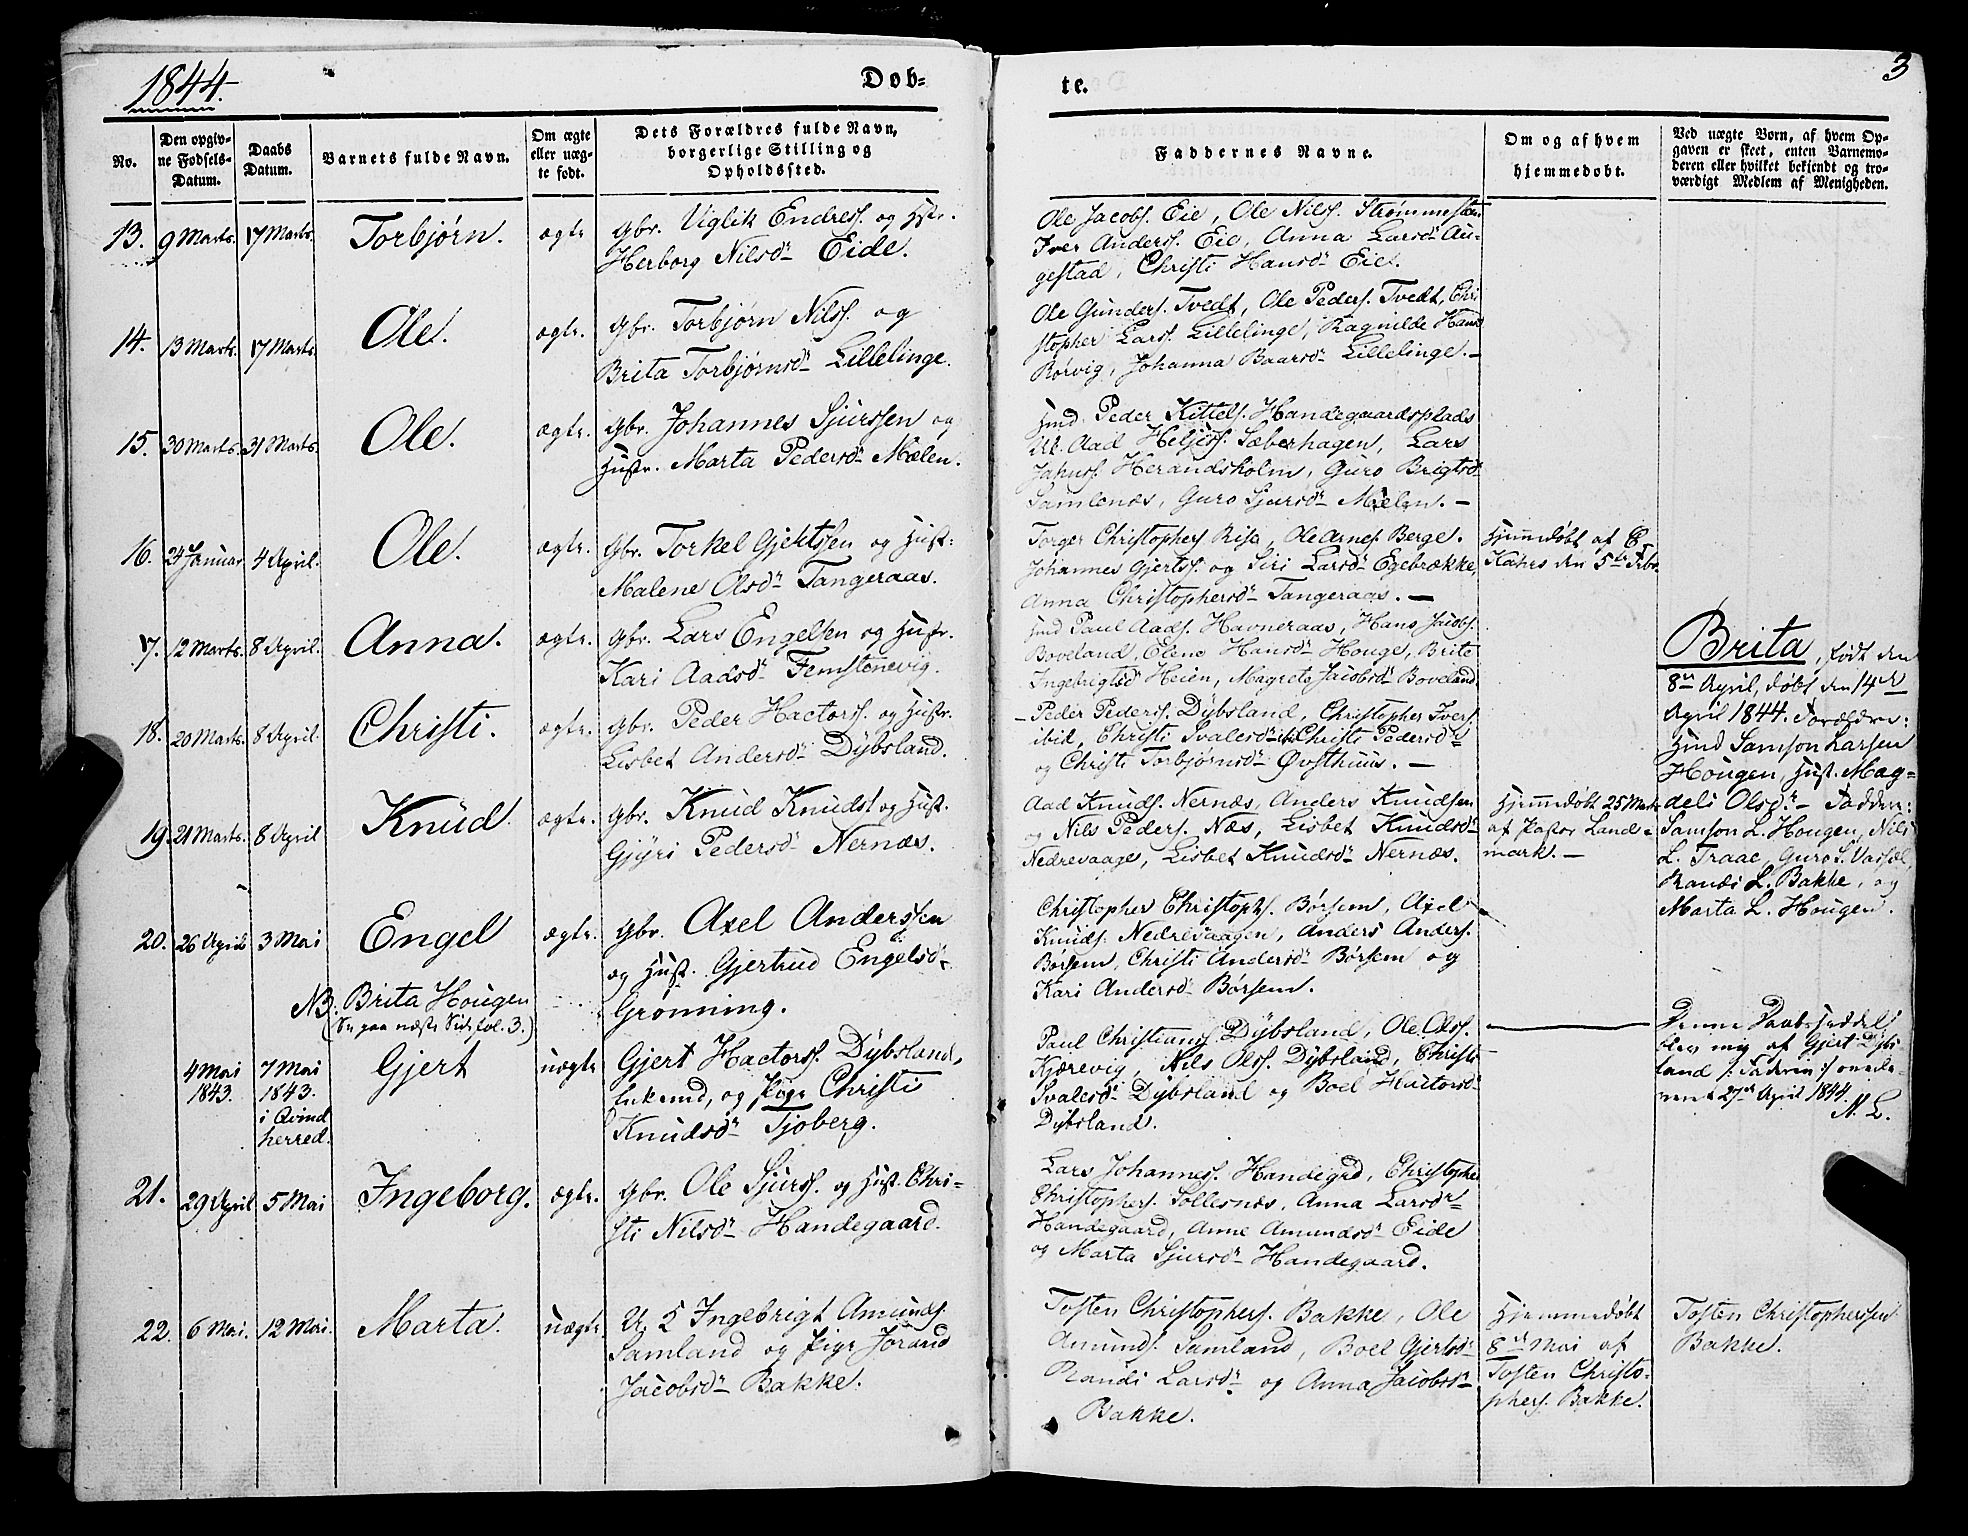 1844.
Døb-
te.
3
No.
Den opgiv-
ne Fødsels-
Datum.
Daabs
Datum.
Barnets fulde Navn.
Om ægte
eller uæg-
te født.
Dets Forældres fulde Navn,
borgerlige Stilling og
Opholdssted.
Faddernes Navne.
Om og af hvem
hjemmedøbt.
Ved uægte Børn, af hvem Op-
gaven er skeet, enten Barnemo-
deren eller hvilket bekjendt og tro-
værdigt Medlem af Menigheden.
13. 9 Marts. 17 Marts. Torbjørn. ægte
Gbr. Viglik Endress. og Hstr.
Herborg Nilsdr Eide.
Ole Jacobs. Eie, Ole Nilss. Strømmesten
Iver Anderss. Eie, Anna Larsdr Au-
gestad, Christi Hansdr Eie.
14. 13 Marts. 17 Marts. Ole. ægte.
Gbr. Torbjørn Nilss. og
Brita Torbjørnsdr Lillelinge.
Ole Gunders. Tvedt, Ole Peders. Tvedt, Chri
stopher Larss. Lillelinge, Ragnilde Hansd
Rørvig, Johanna Baarsdr Lillelinge.
15. 30 Marts. 31 Marts. Ole. ægte.
Gbr. Johannes Sjurssen og
Hustr. Marta Pedersdr Mælen.
Hmd Peder Kittels. Handegaardsplads
Uk. Aad Heljess. Sæberhagen, Lars
Jakuss. Herandsholm, Guro Brigtsdr
Samlenæs, Guro Sjursdr Mælen. —
16. 24 Januar 4 April. Ole. ægte.
Gbr. Torkel Gjertssen og Hust:
Malene Olsdr Tangeraas.
Torger Christophers Risa, Ole Arnes. Berge.
Johannes Gjertss og Siri Larsdr Egebrække,
Anna Christophersdr Tangeraas. —
Hjemmedøbt af E
Kahrs den 5te Febr.
17. 12 Marts. 8 April. Anna. ægte.
Gbr. Lars Engelsen og Hustr.
Kari Aadsdr Femstenevig.
Hmd Paul Aads. Havneraas, Hans Jacobs.
Boveland, Elene Hansdr Houge, Brite
Ingebrigtsdr Heien, Magrete Jacobsdr Boveland.
18. 20 Marts. 8 April. Christi. ægte.
Gbr. Peder Hactorss. og Hustr.
Lisbet Andersdr Dybsland.
Peder Pederss. Dybsland, Christopher Ivers
ibid, Christi Svalesdr ibid Christi Pedersdr
og Christi Torbjørnsdr Øvsthuus. —
19. 21 Marts. 8 April Knud. ægte.
Gbr. Knud Knuds. og Hust.
Gjyri Pedersdr Nernæs.
Aad Knuds. Nernæs, Anders Knudsen
og Nils Peders. Næs, Lisbet Knudsdr
Nedrevaage, Lisbet Knudsdr Nernæs.
Hjemmedøbt 25 Marts
af Pastor Land-
mark. —
20. 26 April 3 Mai Engel ægte.
Gbr. Axel Anderssen
og Hust. Gjertrud Engelsdr
Grønning.
Christopher Christophs. Børsem, Axel
Knuds. Nedrevaagen, Anders Anders.
Børsem, Christi Andersdr Børsem og
Kari Andersdr Børsem.
NB. Brita Hougen
(Se paa næste Side fol. 3.)
Brita, født den
8de April, døbt den 14de
April 1844. Forældre:
Hmd Samson Larsen
Hougen, Hust. Mag-
deli Olsdr — Faddere:
Samson L. Hougen, Nils
L. Traae, Guro S. Vassel,
Randi L. Bakke, og
Marta L. Hougen.
4 Mai
1843.
7 Mai
1843.
i Qvind
herred.
Gjert uægte
Gjert Hactorss. Dybsland,
Enkemd, og Pige Christi
Knudsdr Tjoberg.
Paul Christianss. Dybsland, Ole Olss.
Kjærevig, Nils Olss. Dybsland, Christi
Svalesdr Dybsland og Boel Hactorsdr
Dybsland.
Denne Daabsseddel
blev mig af Gjert Dybs
land /: Faderen :/ overle-
veret 27de April 1844.
N. L.
21. 29 April 5 Mai Ingeborg. ægte.
Gbr. Ole Sjurss. og Hust. Chri-
sti Nilsdr Handegaard.
Lars Johanness. Handegrd, Christopher
Christophers. Sollesnæs, Anna Larsdr
Handegaard, Anne Amundsdr Eide
og Marta Sjursdr Handegaard.
22. 6 Mai. 12 Mai. Marta. uægte
U. S Ingebrigt Amunds.
Samland og Pige Jorand
Jacobsdr Bakke.
Tosten Christophers. Bakke, Ole
Amunds. Samland, Boel Gjertsdr
Randi Larsdr og Anna Jacobsdr
Bakke.
Hjemmedøbt
8de Mai af
Tosten Christo-
phers. Bakke.
Tosten Christophersen
Bakke.